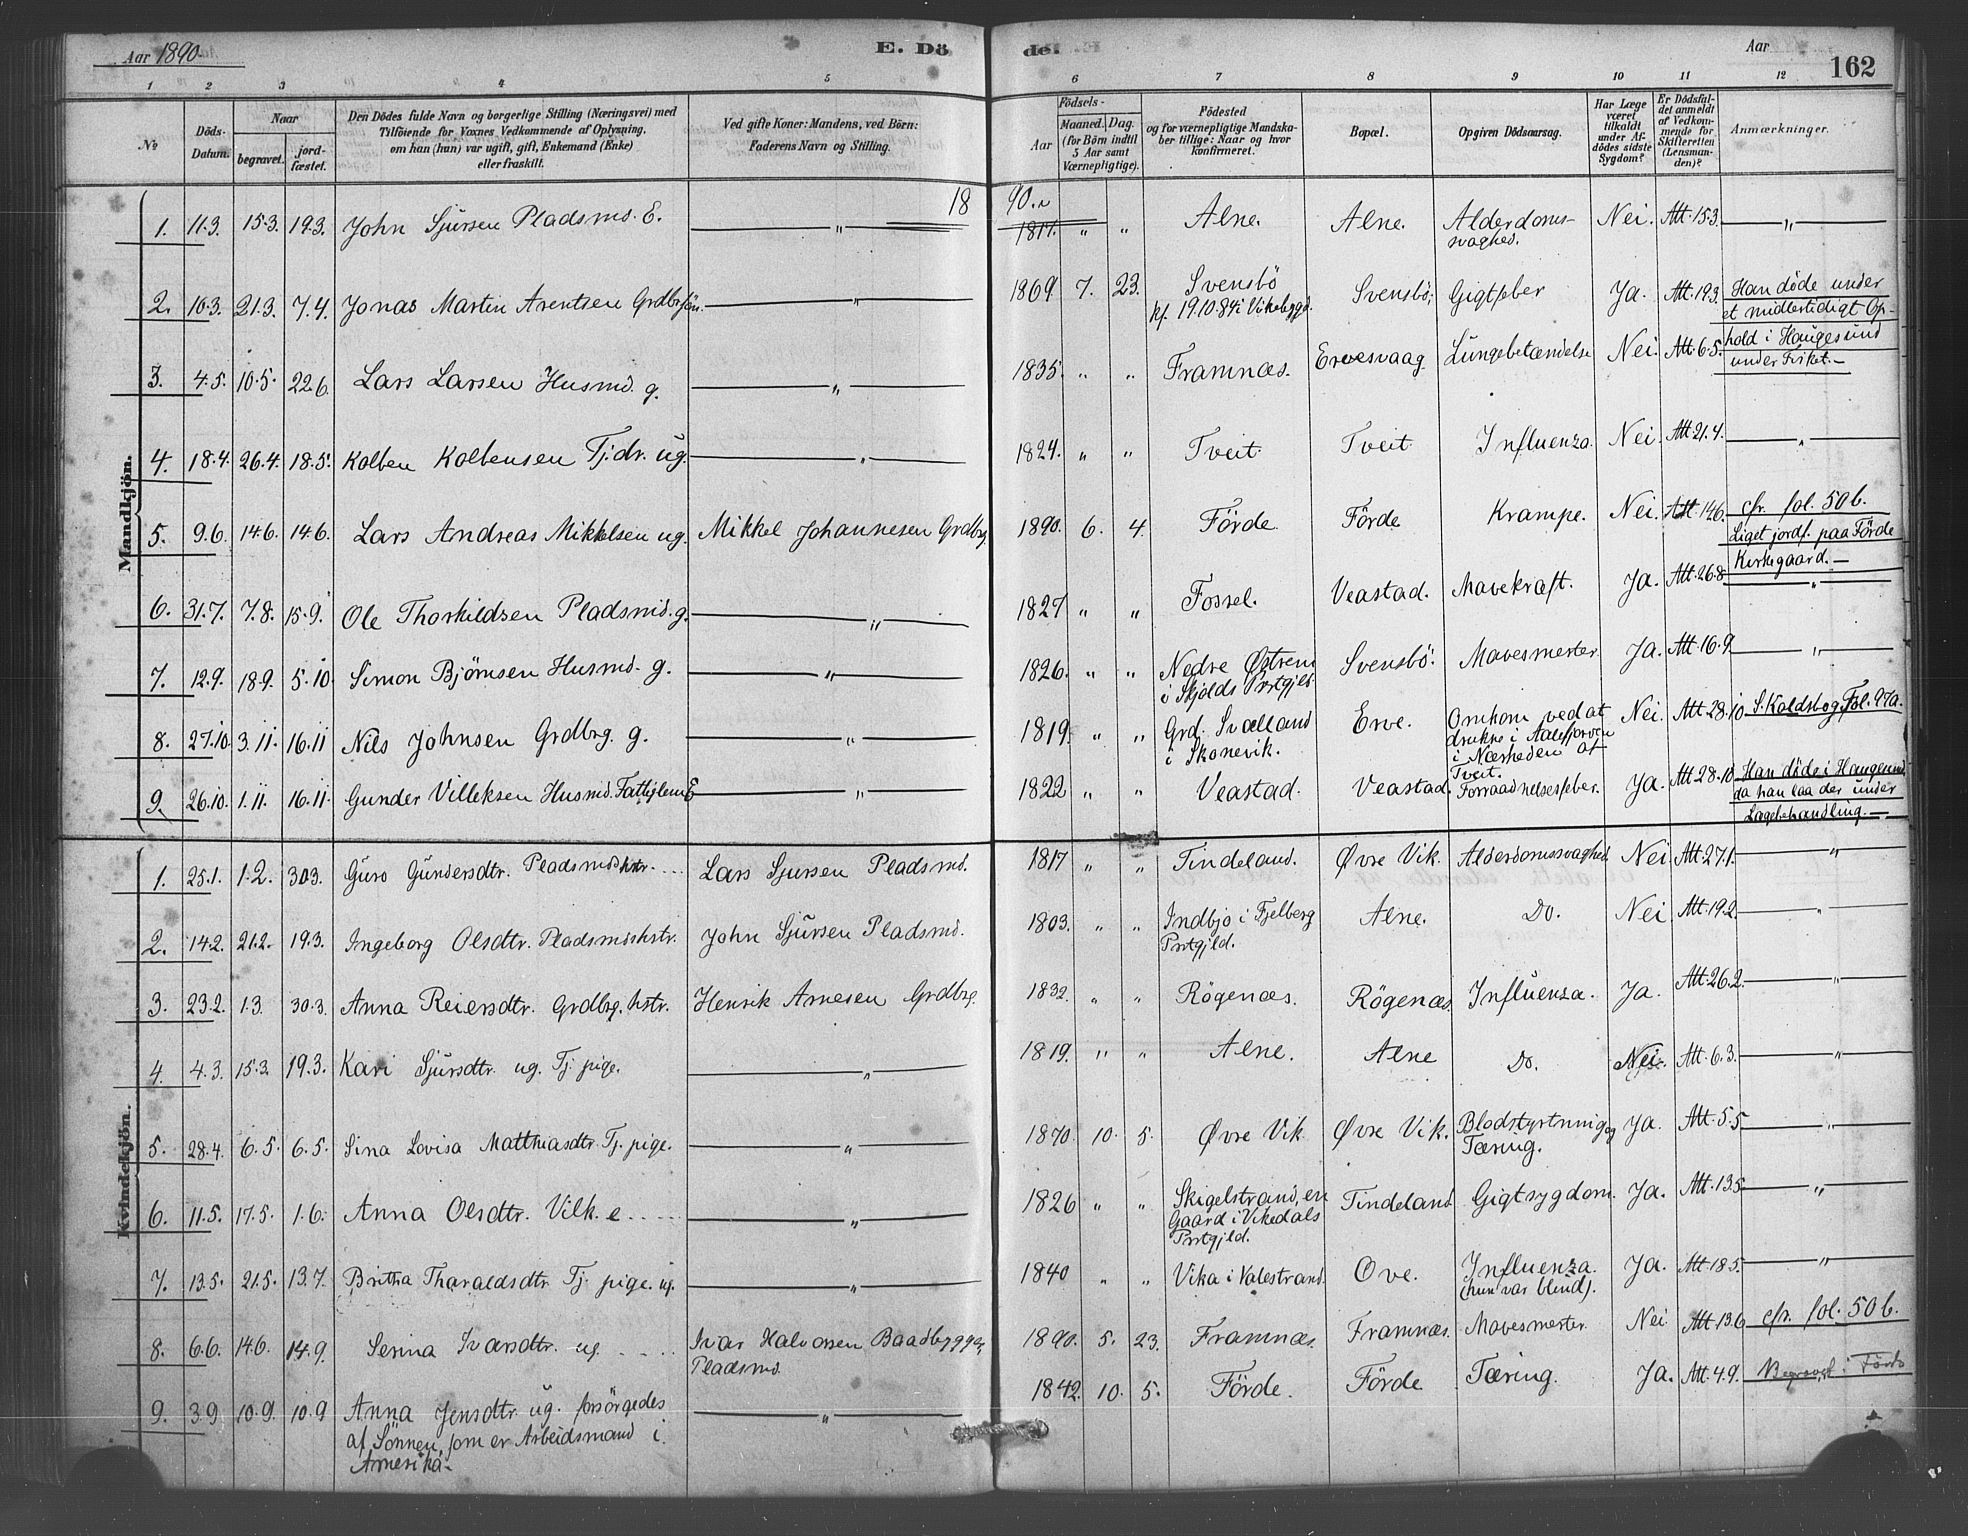 Aar 1890. E. Dö de. Aar 162
1 2 3 4 5 6 7 8 9 10 11 12
No
Döds-Datum.
Naar
begravet.
jordfæstet.
Den Dödes fulde Navn og borgerlige Stilling (Næringsvei) med
Tilföiende for Voxnes Vedkommende af Oplysning,
om han (hun) var ugift, gift, Enkemand (Enke)
eller fraskilt.
Ved gifte Koner: Mandens, ved Börn:
Faderens Navn og Stilling.
Födsels-
Aar
Maaned. Dag.
(for Börn indtil
5 Aar samt
Værnepligtige).
Födested
og for værnepligtige Mandska-
ber tillige: Naar og hvor
konfirmeret.
Bopæl.
Opgiven Dödsaarsag.
Har Læge
været
tilkaldt
under Af-
dödes sidste
Sygdom?
Er Dödsfal-
det anmeldt
af Vedkom-
mende for
Skifteretten
(Lensman-
den)?
Anmærkninger.
1890.
Mandkjön.
1. 11.3. 15.3. 19.3. John Sjursen Pladsmd. E. — " — 1817. " " Alne. Alne. Alderdoms-
svaghed. Nei. Att. 15.3. — " —
2. 10.3. 21.3. 7.4. Jonas Martin Arentsen Grdbrsön. — " — 1869. 7. 23. Svensbö
kf. 19.10.84 i Vikebygd. Svensbö. Gigtfeber Ja. Att. 19.3. Han döde under
et midlertidigt Op-
hold i Haugesund
under Fisket. —
3. 4.5. 10.5. 22.6. Lars Larsen Husmd. g. — " — 1835. " " Framnæs. Ervesvaag. Lungebetændelse Nei. Att. 6.5.
4. 18.4. 26.4. 18.5. Kolben Kolbensen Tj.dr. ug. — " — 1824. " " Tveit. Tveit Influenza. Nei. Att. 21.4. — " —
5. 9.6. 14.6. 14.6. Lars Andreas Mikkelsen ug. Mikkel Johannesen Grdbrg. 1890. 6. 4. Förde Förde Krampe. Nei. Att. 14.6. cfr. fol. 50 b.
Liget jordf. paa Förde
Kirkegaard. —
6. 31.7. 7.8. 15.9. Ole Thorkildsen Pladsmd. g. — " — 1827 " " Fossel. Veastad. Mavekræft. Ja. Att. 26.8. — " —
7. 12.9. 18.9. 5.10. Simon Björnsen Husmd. g. — " — 1826. " " Nedre Østrem
i Skjolds Prstgjld. Svensbö. Mavesmerter. Ja. Att. 16.9. — " —
8. 27.10. 3.11. 16.11 Nils Johnsen Grdbrg. g. — " — 1819. " " Grd. Svælland
i Skonevik. Erve. Omkom ved at
drukne i Aalefjorden
i Nærheden af
Tveit. Nei. Att. 28.10
9. 26.10. 1.11. 16.11. Gunder Villeksen Husmd. Fattiglem E — " — 1822 " " Veastad. Veastad. Forraadnelsesfeber. Ja. Att. 28.10. Han döde i Haugesund
da han laa der under
Lægebehandling. —
Kvindekjön.
1. 25.1. 1.2. 30.3. Guro Gundersdtr. Pladsmdshstr. Lars Sjursen Pladsmd. 1817 " " Tindeland. Øvre Vik. Alderdomssvaghed. Nei. Att. 27.1. — " —
2. 14.2. 21.2. 19.3. Ingeborg Olsdtr. Pladsmdshstr. John Sjursen Pladsmd. 1803. " " Indbjo i Fjelberg
Prstgjld. Alne. Do. Nei. Att. 19.2. — " —
3. 23.2. 1.3. 30.3. Anna Reiersdtr. Grdbrg. hstr. Henrik Arnesen Grdbrg. 1832. " " Rögenæs. Rögenæs. Influenza. Ja. Att. 26.2. — " —
4. 4.3. 15.3 19.3. Kari Sjursdtr. ug. Tj. pige. — " — 1819. " " Alne. Alne Do. Nei. Att. 6.3. — " —
5. 28.4. 6.5. 6.5. Sina Lovisa Matthiasdtr. Tj. pige. — " — 1870. 10. 5. Øvre Vik Øvre Vik. Blodstyrtning og
Tæring. Ja. Att. 5.5 — " —
6. 11.5. 17.5. 1.6. Anna Olsdtr. Vilk. e — " — 1826 " " Skigelstrand, en
Gaard i Vikedals
Prstgjld. Tindeland Gigtsygdom. Ja. Att. 13.5 — " —
7. 13.5. 21.5. 13.7. Britha Tharaldsdtr. Tj. pige. ug. — " — 1840 " " Vika i Valestrand. Ove. Influenza.
(hun var blind). Ja. Att. 18.5. — " —
8. 6.6. 14.6. 14.9. Serina Ivarsdtr. ug. Ivar Halvorsen Baadbygger,
Pladsmd. 1890. 5. 23. Framnæs. Framnæs. Mavesmerter. Nei Att. 13.6 cfr. fol. 50 b.
9. 3.9. 10.9. 10.9 Anna Jensdtr. ug. forsörgedes
af Sönnen, som er Arbeidsmand i
Amerika. — " — 1842. 10. 5. Förde. Förde Tæring. Ja. Att. 4.9. Begravet i Förde